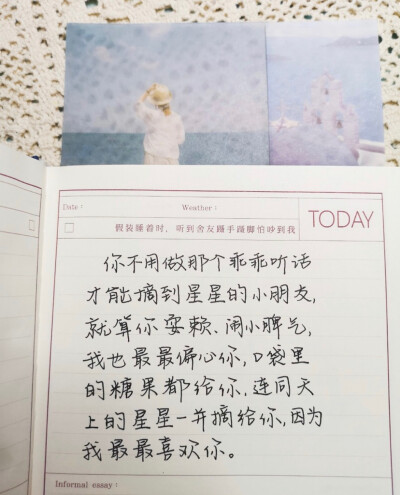 Date：
Weather：
假装睡着时，听到舍友蹑手蹑脚怕吵到我
TODAY
你不用做那个乖乖听话
才能摘到星星的小朋友,
就算你耍赖、闹小脾气,
我也最最偏心你,口袋里
的糖果都给你,连同天
上的星星一并摘给你,因为
我最最喜欢你。
Informal essay：